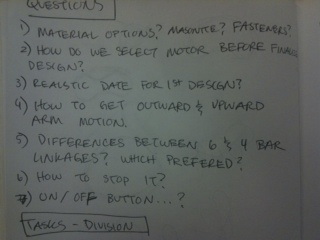 QUESTIONS
1) MATERIAL OPTIONS? MASONITE? FASTENERS?
2) HOW DO WE SELECT MOTOR BEFORE
DESIGN?
3) REALSTIC DATE FOR 1ST DESIGN?
4) HOW TO GET OUTWARD & UPWARD
ARM MOTION.
5) DIFFERENCES BETWEEN 6 & 4 BAR
LINKAGES? WHICH PREFERED?
6) HOW TO STOP IT?
7) ON/OFF BUTTON...?
TASKS - DIVISION